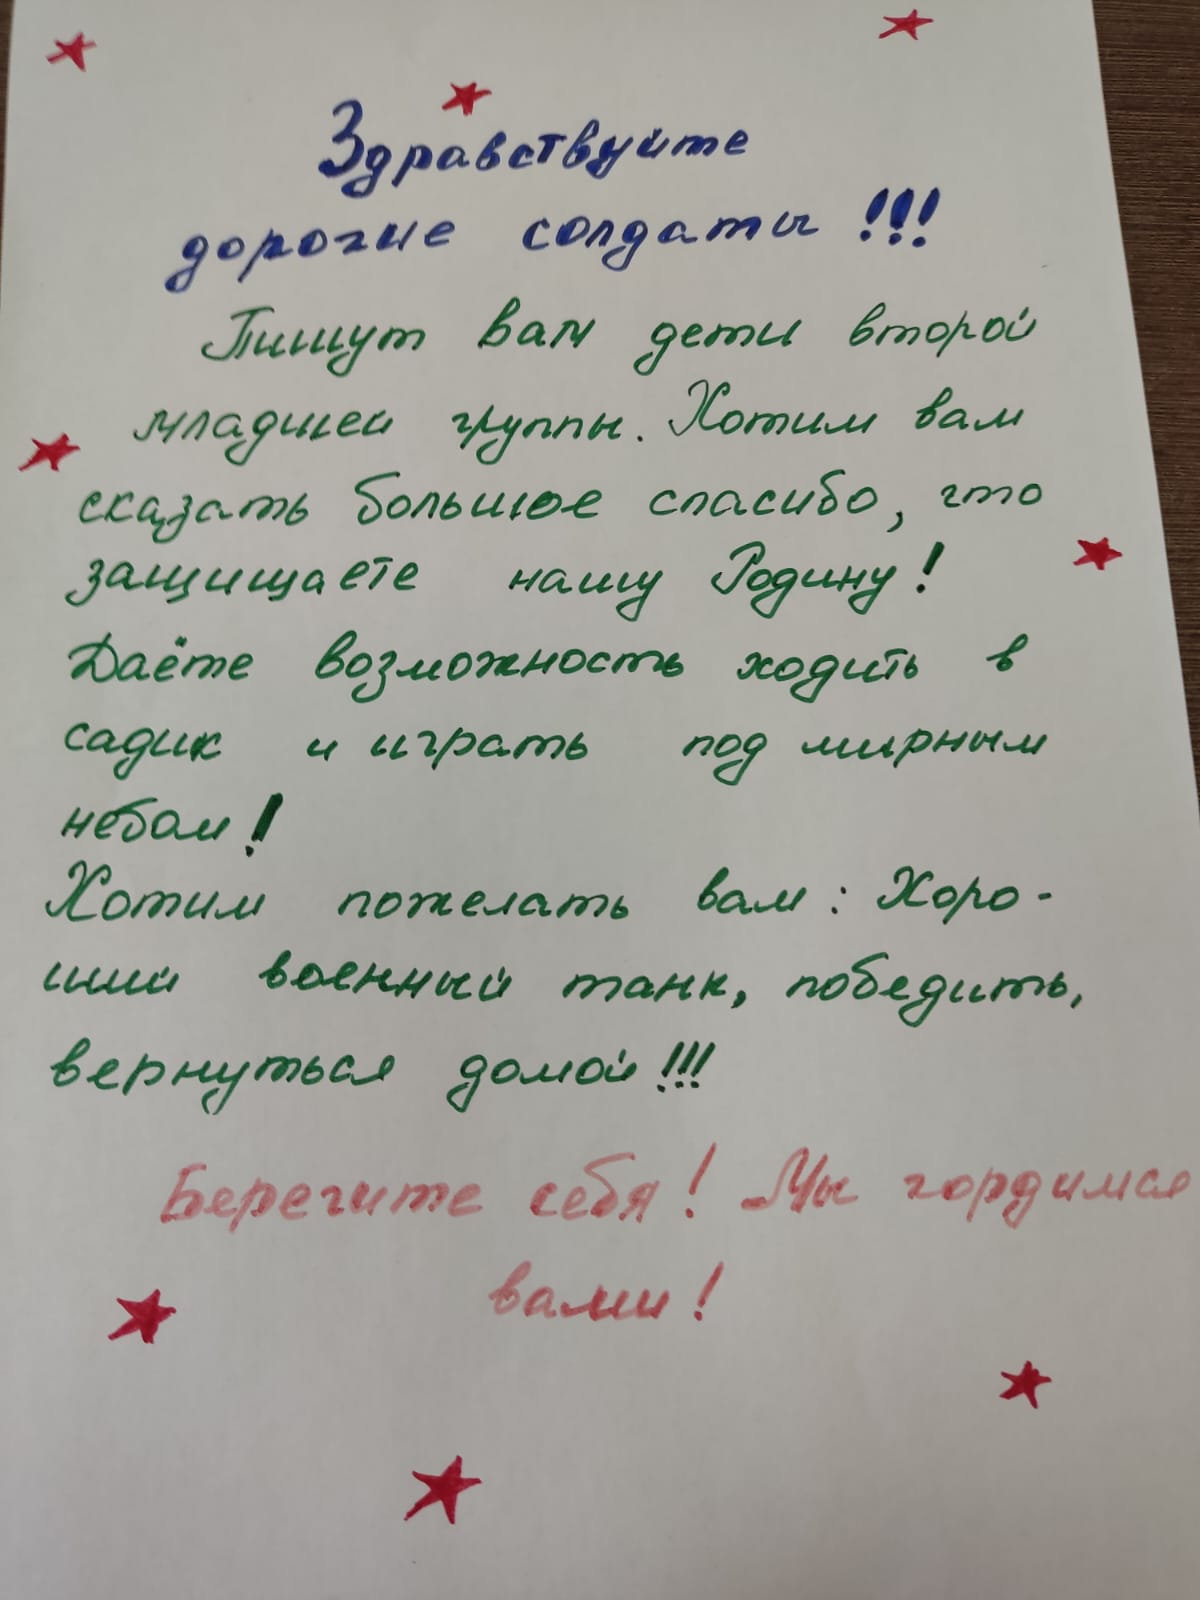 Здравствуйте
дорогие солдаты!!!
Пишут вам дети второй
младшей группы. Хотим вам
сказать большое спасибо, что
защищаете нашу Родину!
Даёте возможность ходить в
садик и играть под мирным
небом!
Хотим пожелать вам: Хоро-
ший военный танк, победить,
вернуться домой!!!
Берегите себя! Мы гордимся
вами!